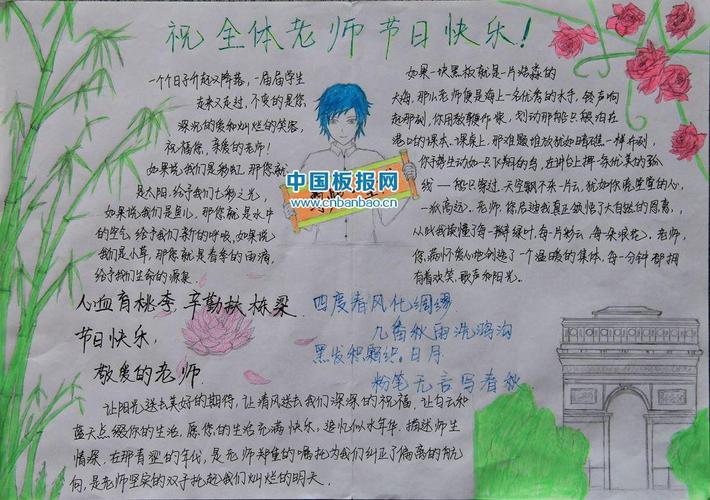 祝全体老师节日快乐!
一个个日子升起又降落，一届届学生
走来又走过，不变的是您
深沉的爱和灿烂的笑容，
祝福您，亲爱的老师!
如果说我们是彩虹，那您就
是太阳，给予我们七彩之光，
如果说我们是鱼儿，那您就是水中
的空气，给予我们新的呼吸，如果说
我们是小草，那您就是春季的雨滴，
给予我们生命的源泉.
如果一块黑板就是一片浩淼的
大海，那么老师便是海上一名优秀的水手，铃声响
起那刻，你用教鞭作桨，划动那船只般泊在
港口的课本。课桌上，那难题堆放犹如暗礁一样
你手势生动如一只飞翔的鸟，在讲台上挥一条优美的弧
线——船只穿过，天空飘不来一片云，犹如你亮堂堂的心，
一派高远。老师，您启迪我真正领悟了大自然的恩惠，
从此我读懂了每一瓣绿叶，每一片彩云，每一朵浪花。老师，
你创造了一个温暖的集体，每一分钟都拥
有着欢笑、歌声和阳光。
中国板报网
www.cnbanbao.cn
心血育桃李，辛勤扶栋梁
节日快乐，
敬爱的老师
四度春风化绸缪
几番秋雨洗鸿沟
黑发积霜织日月
粉笔无言写春秋
让阳光送去美好的期待，让清风送去我们深深的祝福，让白云和
蓝天点缀你的生活，愿您的生活充满快乐，追忆似水年华，描述师生
情深，在那青涩的年代，是老师郑重的嘱托为我们纠正了偏离的航
向，是老师坚实的双手托起我们灿烂的明天.